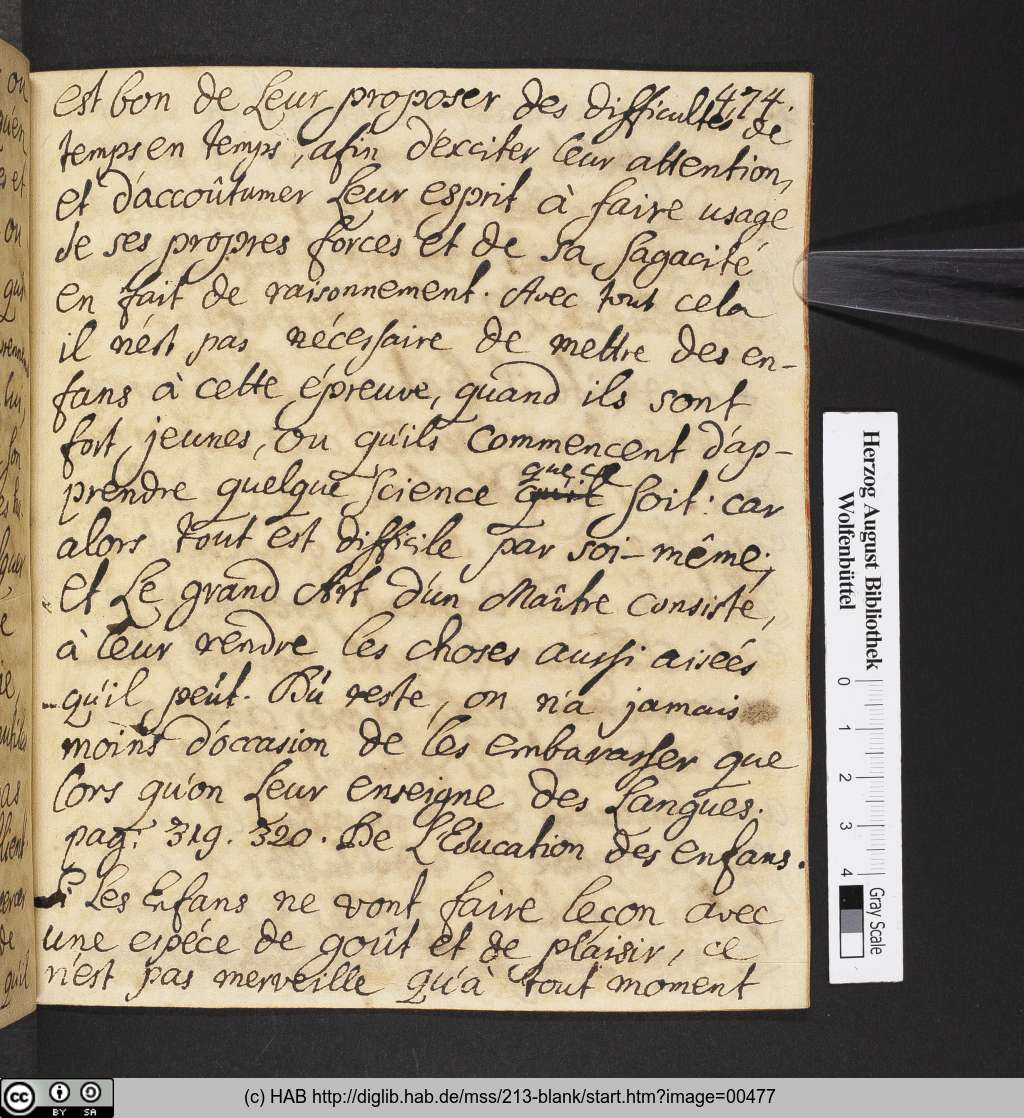 474.
est bon de Leur proposer des difficultés de
temps en temps, afin d'exciter leur attention,
et d'accoûtumer Leur esprit à faire usage
de ses propres forces et de sa sagacité
en fait de raisonnement. Avec tout cela
il n'est pas nécessaire de mettre des en-
fans à cette épreuve, quand ils sont
fort jeunes, ou qu'ils commencent d'ap-
prendre quelque science que ce soit: car
alors tout est difficile par soi-même;
et Le grand Art d'un Maître consiste,
à leur rendre les choses aussi aiseés
qu'il peut. Du reste, on n'a jamais
moins d'occasion de les embarasser que
Lors qu'on Leur enseigne des Langues.
pag. 319. 320. De L'Education des enfans.
Si Les Enfans ne vont faire leçon avec
une espéce de goût et de plaisir, ce
n'est pas merveille qu'à tout moment
Herzog August Bibliothek
Wolfenbüttel
0 1 2 3 4
Gray Scale
(c) HAB http://diglib.hab.de/mss/213-blank/start.htm?image=00477
cc BY SA